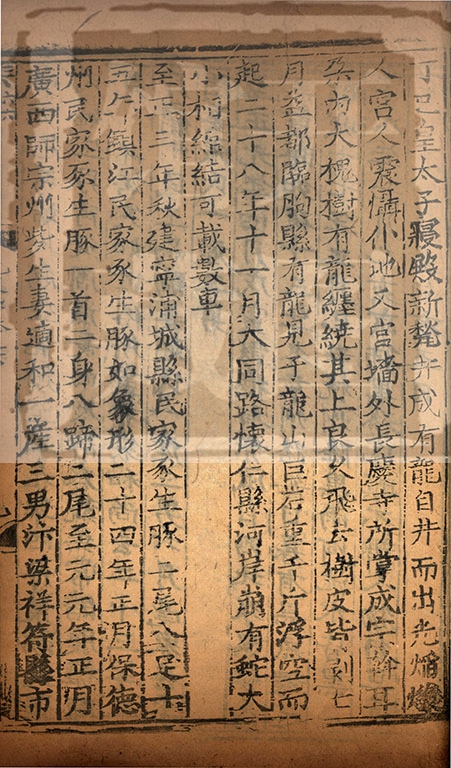 丁巳皇太子寢殿新甃井成有龍自井而出光焰爍
人宮人震懾仆地又宮墻外長慶寺所掌成宗斡耳
朶內大槐樹有龍纏繞其上良久飛去樹皮皆剥七
月益都臨朐縣有龍見于龍山巨石重千斤浮空而
起二十八年十一月大同路懷仁縣河岸崩有蛇大
小相綰結可載數車
至正三年秋建寧浦城縣民家豕生豚二尾八足十
五年鎮江民家豕生豚如象形二十四年正月保德
州民家豕生豚一首二身八蹄二尾至元元年正月
廣西師宗州生妻適和一產三男汴梁祥符縣市